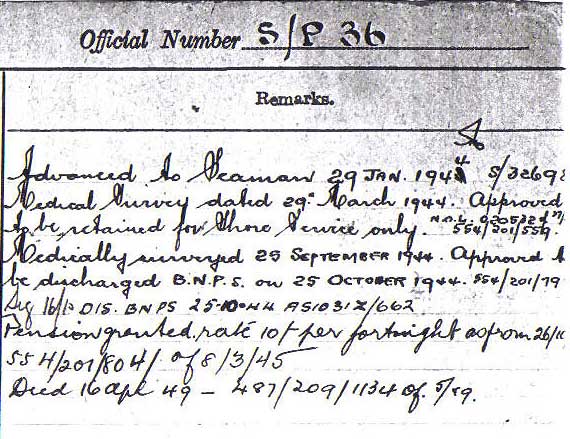 Official Number S/P 36
Remarks.
Advanced to Seaman 29 JAN. 1944 S/3269
Medical Survey dated 29th March 1944. Approved
to be retained for Shore Service only. 554/201/559.
Medically surveyed 25 SEPTEMBER 1944. Approved t
be discharged B.N.P.S. on 25 OCTOBER 1944. 554/201/79
Sig DIS. BNPS 25·10·44 AS1031Z/662
Pension granted, rate 10/- per fortnight as from 26/10
554/201/804/ of 8/3/45
Died 16 Apl 49 – 487/209/1134 of. 5/49.